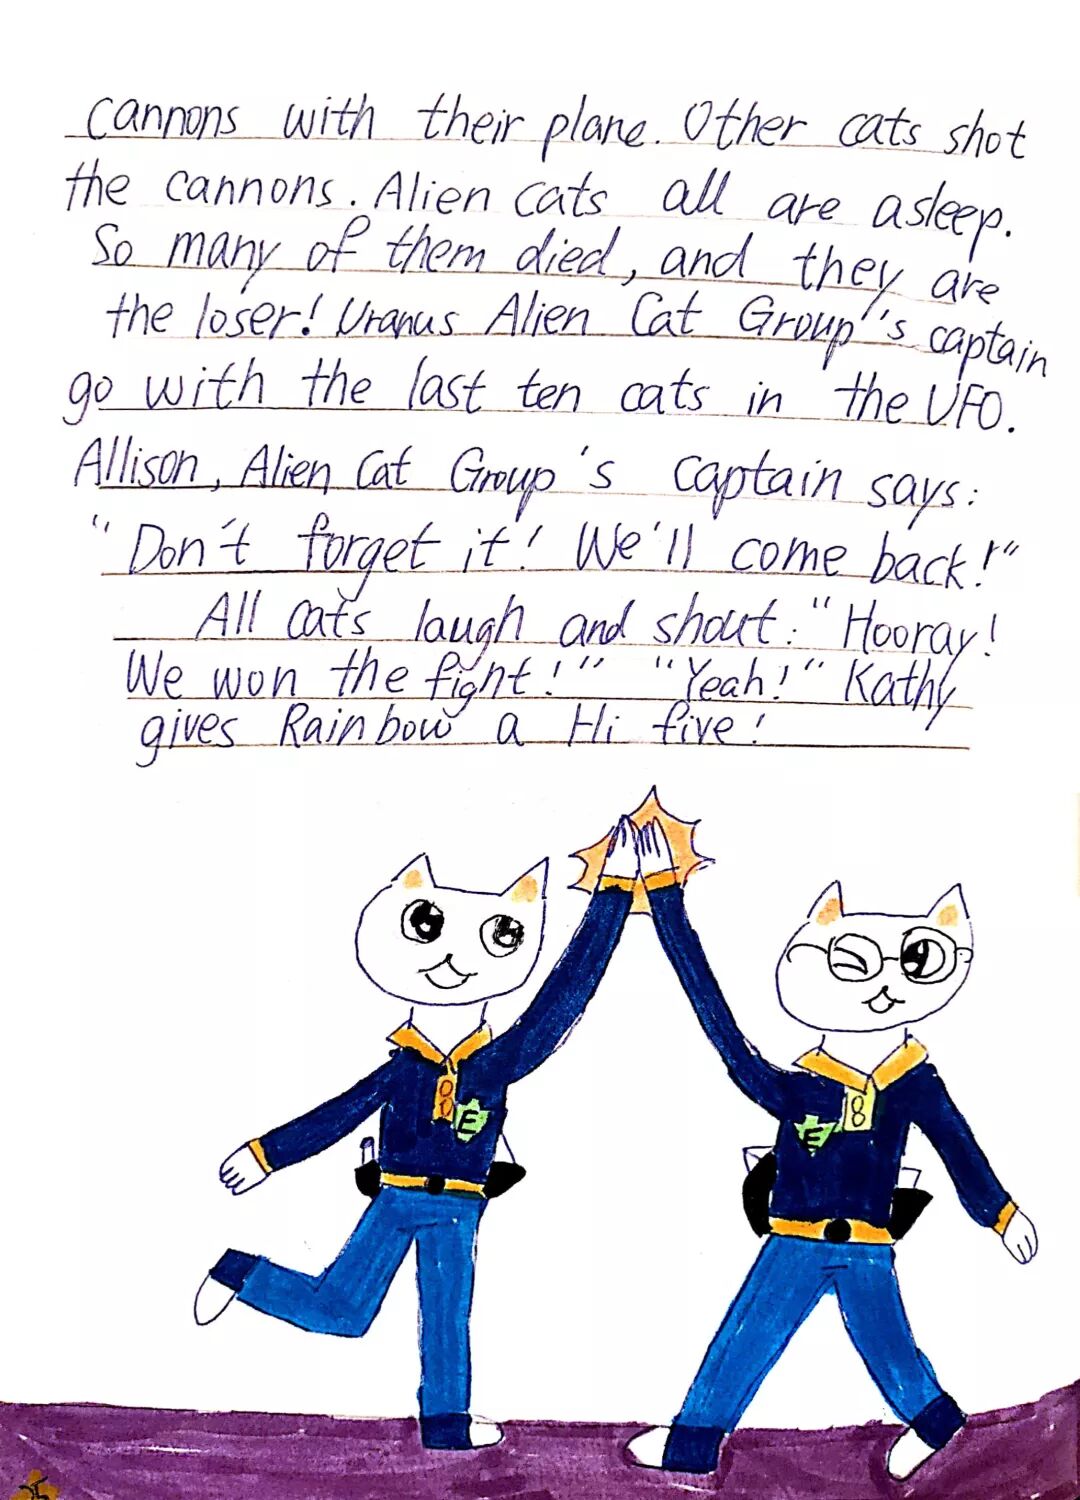 cannons with their plane. Other cats shot
the cannons. Alien cats all are asleep.
So many of them died, and they are
the loser! Uranus Alien Cat Group's captain
go with the last ten cats in the UFO.
Allison, Alien Cat Group's captain says:
"Don't forget it! We'll come back!"
All cats laugh and shout: "Hooray!
We won the fight!" "Yeah!" Kathy
gives Rainbow a Hi five!
8 E
E 8